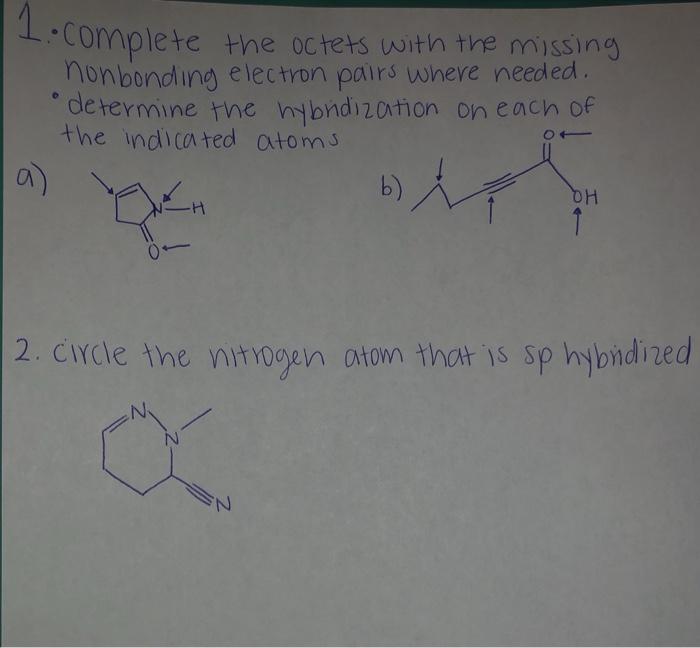 1. • complete the octets with the missing
nonbonding electron pairs where needed.
• determine the hybridization on each of
the indicated atoms
a)
N-H
O
b)
O
OH
2. circle the nitrogen atom that is sp hybridized
N
N
N